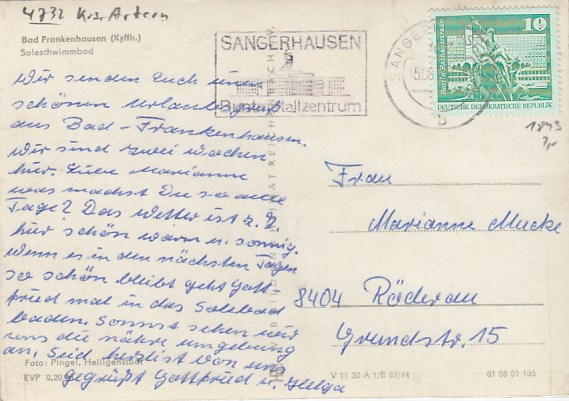 4732 Krs. Artern
Bad Frankenhausen (Kyffh.)
Soleschwimmbad
SANGERHAUSEN
Buntmetallzentrum
SANGER
10
DEUTSCHE DEMOKRATISCHE REPUBLIK
b
1843
Wir senden Euch einen
schönen Urlaubsgruß
aus Bad-Frankenhausen.
Wir sind zwei Wochen
hier. Liebe Marianne
was machst Du so alle
Tage? Das Wetter ist z. Z.
hier schön warm u. sonnig.
Wenn es in den nächsten Tagen
so schön bleibt geht Gott-
fried mal in das Solebad
baden. Sonnst sehen wir
uns die nähre Umgebung
an. Seid herzlist von uns
gegrüßt Gottfried u. Helga
Frau
Marianne Mucke
8404 Röderau
Grundstr. 15
Foto: Pingel, Heiligenstadt
EVP 0,20
V 11 50 A 1/B 87/74
01 06 01 105